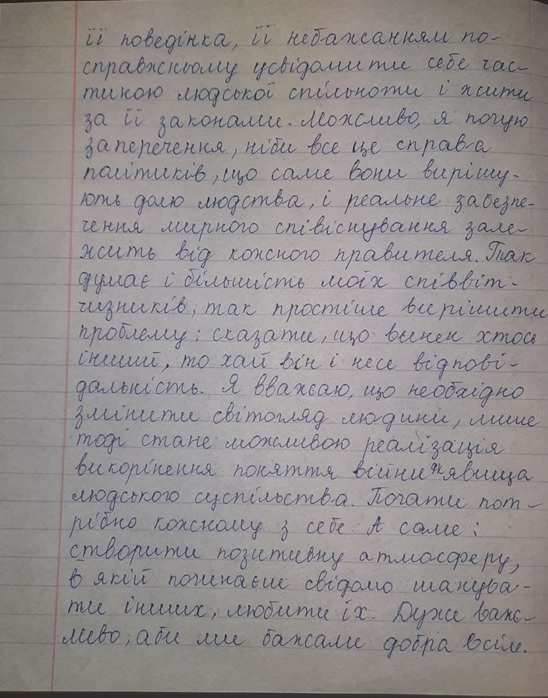 її поведінка, її небажанням по-
справжньому усвідомити себе час-
тиною людської спільноти і жити
за її законами. Можливо, я почую
заперечення, ніби все це справа
політиків, що саме вони вирішу-
ють долю людства, і реальне забезпе-
чення мирного співіснування зале-
жить від кожного правителя. Так
думає і більшість моїх співвіт-
чизників, так простіше вирішити
проблему: сказати, що винен хтось
інший, то хай він і несе відпові-
дальність. Я вважаю, що необхідно
змінити світогляд людини, лише
тоді стане можливою реалізація
викорінення поняття війни як явища
людського суспільства. Почати пот-
рібно кожному з себе. А саме:
створити позитивну атмосферу,
в якій починаєш свідомо шанува-
ти інших, любити їх. Дуже важ-
ливо, аби ми бажали добра всім.